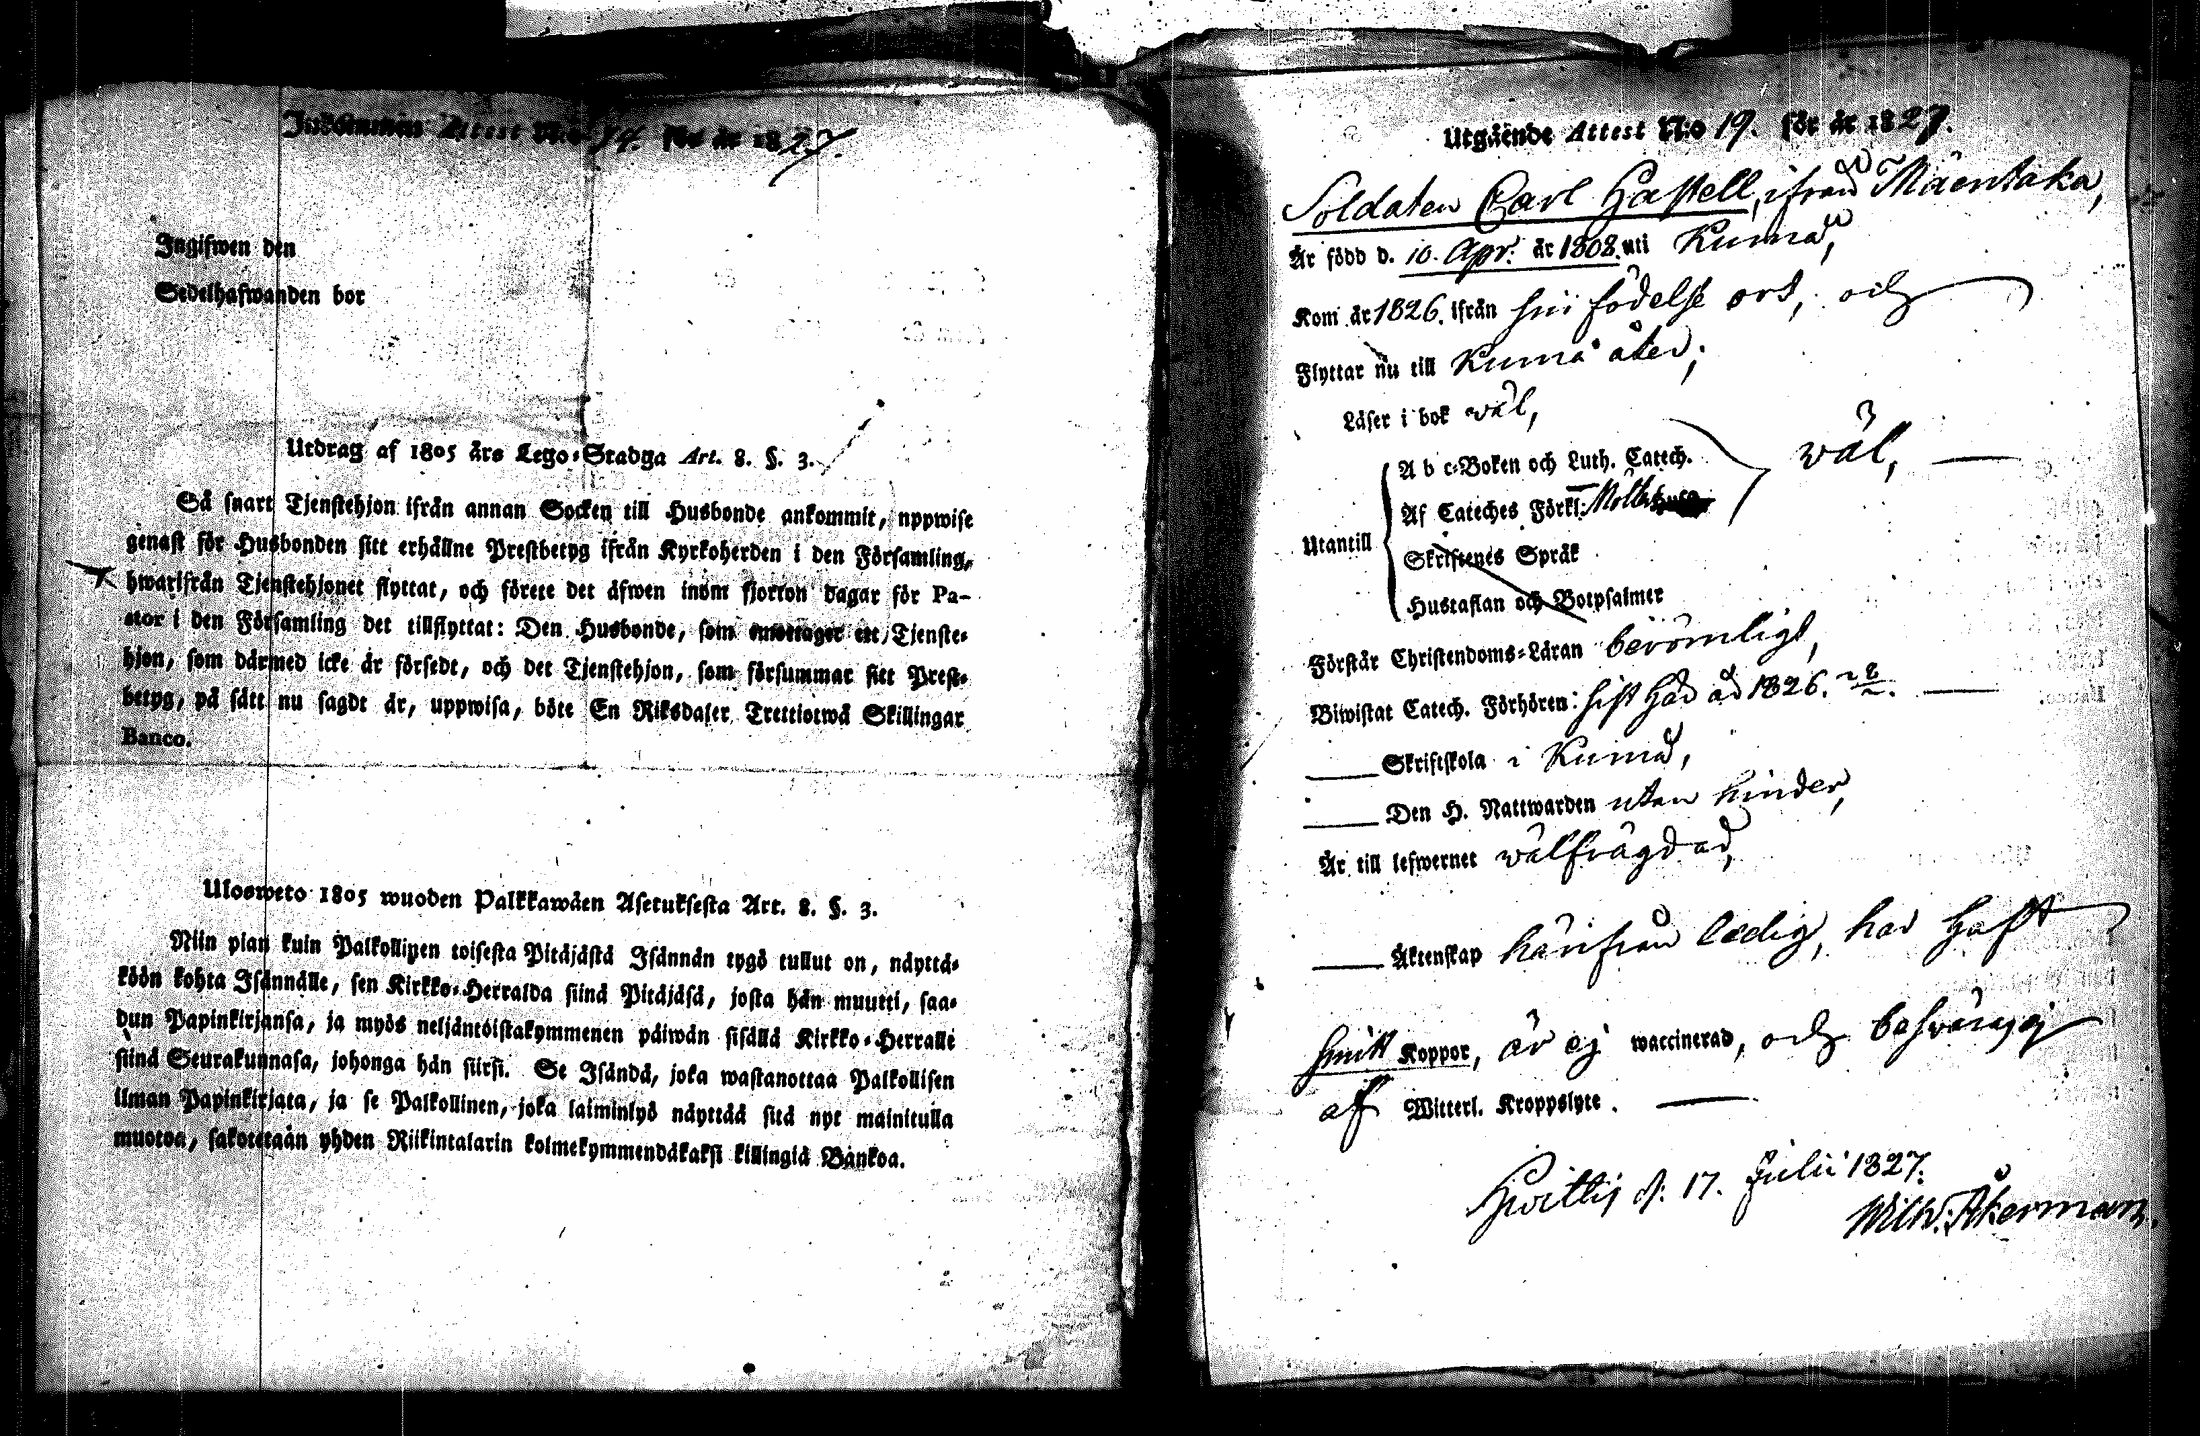 Inkommin Attest N:o 74. för år 1827.
Ingifwen den
Sedelhafwanden bor
Utdrag af 1805 års Lego-Stadga Art. 8. §. 3.
Så snart Tjenstehjon ifrån annan Socken till Husbonde ankommit, uppwise
genast för Husbonden sitt erhållne Prestbetyg ifrån Kyrkoherden i den Församling,
hwarifrån Tjenstehjonet flyttat, och förete det äfwen inom fjorton dagar för Pa-
stor i den Församling det tillflyttat: Den Husbonde, som emottager ett Tjenste-
hjon, som därmed icke är försedt, och det Tjenstehjon, som försummar sitt Prest-
betyg, på sätt nu sagdt är, uppwisa, böte En Riksdaler Trettiotwå Skillingar
Banco.
Ulosweto 1805 wuoden Palkkawäen Asetuksesta Art. 8. §. 3.
Niin pian kuin Palkollinen toisesta Pitäjästä Isännän tygö tullut on, näyttä-
köön kohta Isännälle, sen Kirkko-Herralda siinä Pitäjäsä, josta hän muutti, saa-
dun Papinkirjansa, ja myös neljäntöistakymmenen päiwän sisällä Kirkko-Herralle
siinä Seurakunnasa, johonga hän siirsi. Se Isändä, joka wastanottaa Palkollisen
ilman Papinkirjata, ja se Palkollinen, joka laiminlyö näyttää sitä nyt mainitulla
muotoa, sakotetaan yhden Riikintalarin kolmekymmendäkaksi killingiä Bankoa.
Utgående Attest N:o 19. för år 1827.
Soldaten Carl Hastell, ifrån Mäentaka,
Är född d. 10. Apr. år 1808. uti Kumå,
Kom år 1826. ifrån sin födelse ort, och
Flyttar nu till Kumå åter;
Läser i bok wäl,
A b c-Boken och Luth. Catech. wäl,
Af Cateches Förkl:
Utantill
Skriftenes Språk
Hustaflan och Botpsalmer
Förstår Christendoms-Läran berömligt,
Biwistat Catech. Förhören: sist här åd 1826.
Skriftskola i Kumå,
Den H. Nattwarden utan hinder,
Är till lefwernet wälfrägdad,
Äktenskap härifrån ledig, har haft
Koppor, är ej waccinerad, och beswäras ej
af Witterl. Kroppslyte.
Hwittis d. 17. Julii 1827.
Wilh. Åkerman.